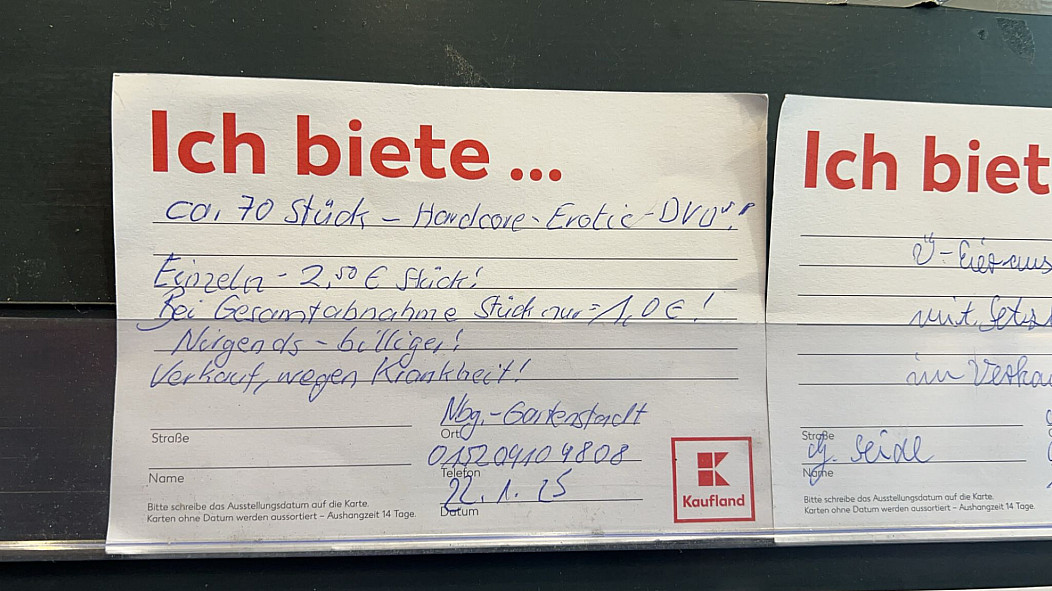 Ich biete ...
ca. 70 Stück - Hardcore-Erotic-DVD's!
Einzeln - 2,50 € Stück!
Bei Gesamtabnahme Stück nur = 1,0 € !
Nirgends - billiger!
Verkauf, wegen Krankheit!
Straße
Nbg.-Gartenstadt
Ort
01520910 9808
Telefon
Name
22.1.25
Datum
Bitte schreibe das Ausstellungsdatum auf die Karte.
Karten ohne Datum werden aussortiert – Aushangzeit 14 Tage.
Kaufland
Ich biet
Ü-Eier aus
mit Sets
im Verka
Straße
g. Seidl
Name
Bitte schreibe das Ausstellungsdatum auf die Karte.
Karten ohne Datum werden aussortiert – Aushangzeit 14 Tage.